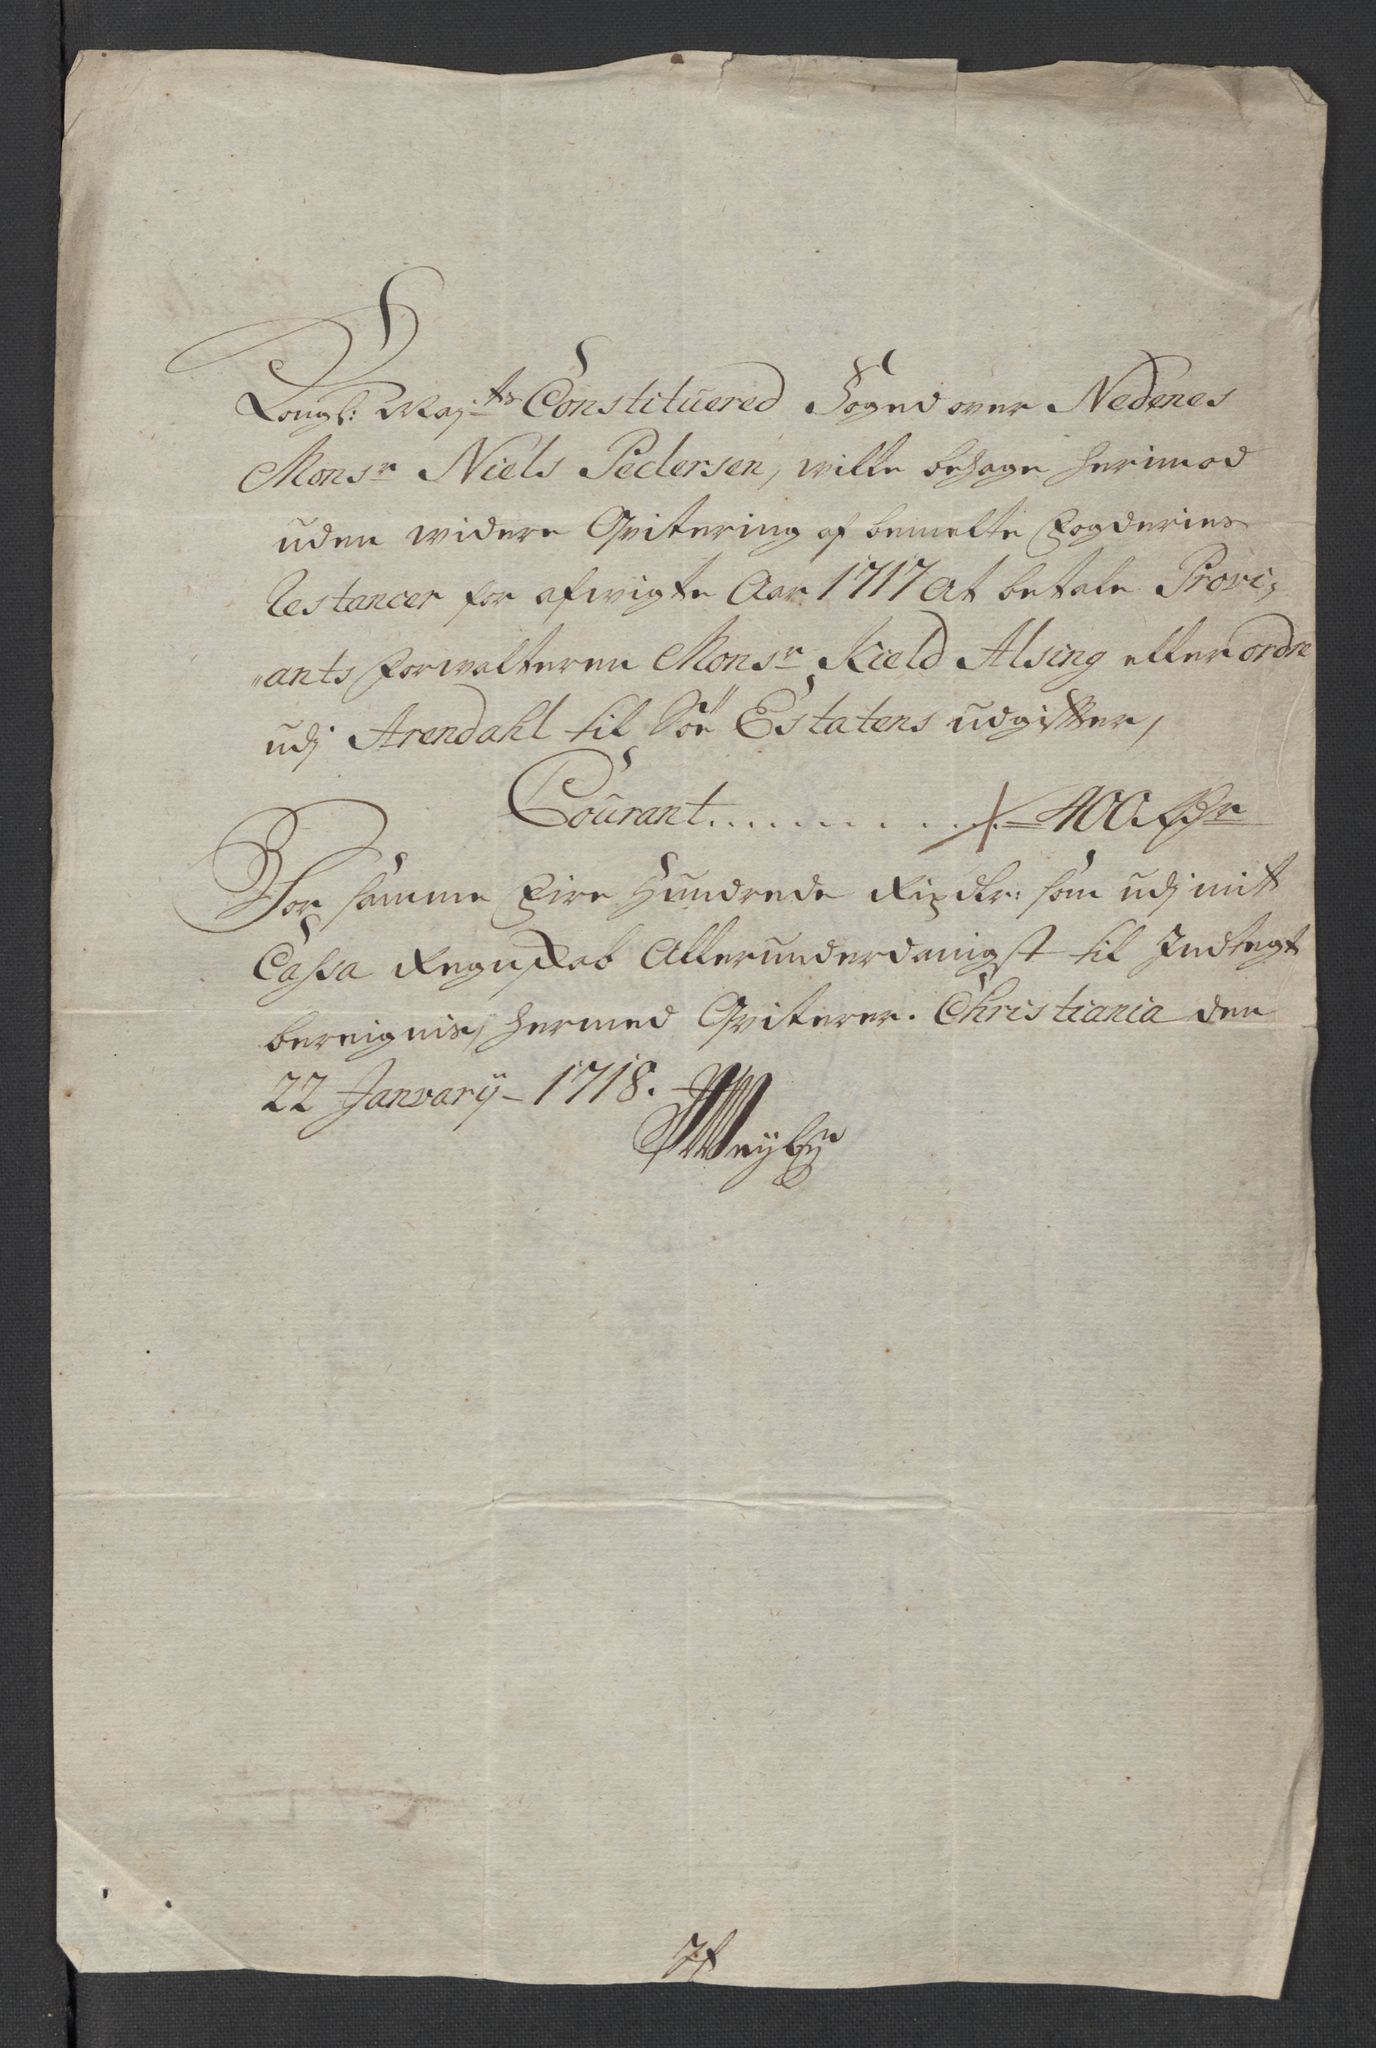 Kongl: Maj:ts Constituered Foged over Nedenes
Monsr Niels Pedersen, wille behage herimod
uden widere Qvitering af bemelte Fogderies
Restancer for afwigte Aar 1717 at betale Provi,
"ants Forwalteren Monsr Kield Alsing eller ordre
udj Arendahl til Söe Estatens udgifter,
Courant.......... 400 Rdr
For samme Fire Hundrede Rixdlr: som udj mitt
Cassa Regnskab Allerunderdanigst til Indtegt
bereignis, hermed Qviterer. Christiania den
22 Janvarij - 1718.